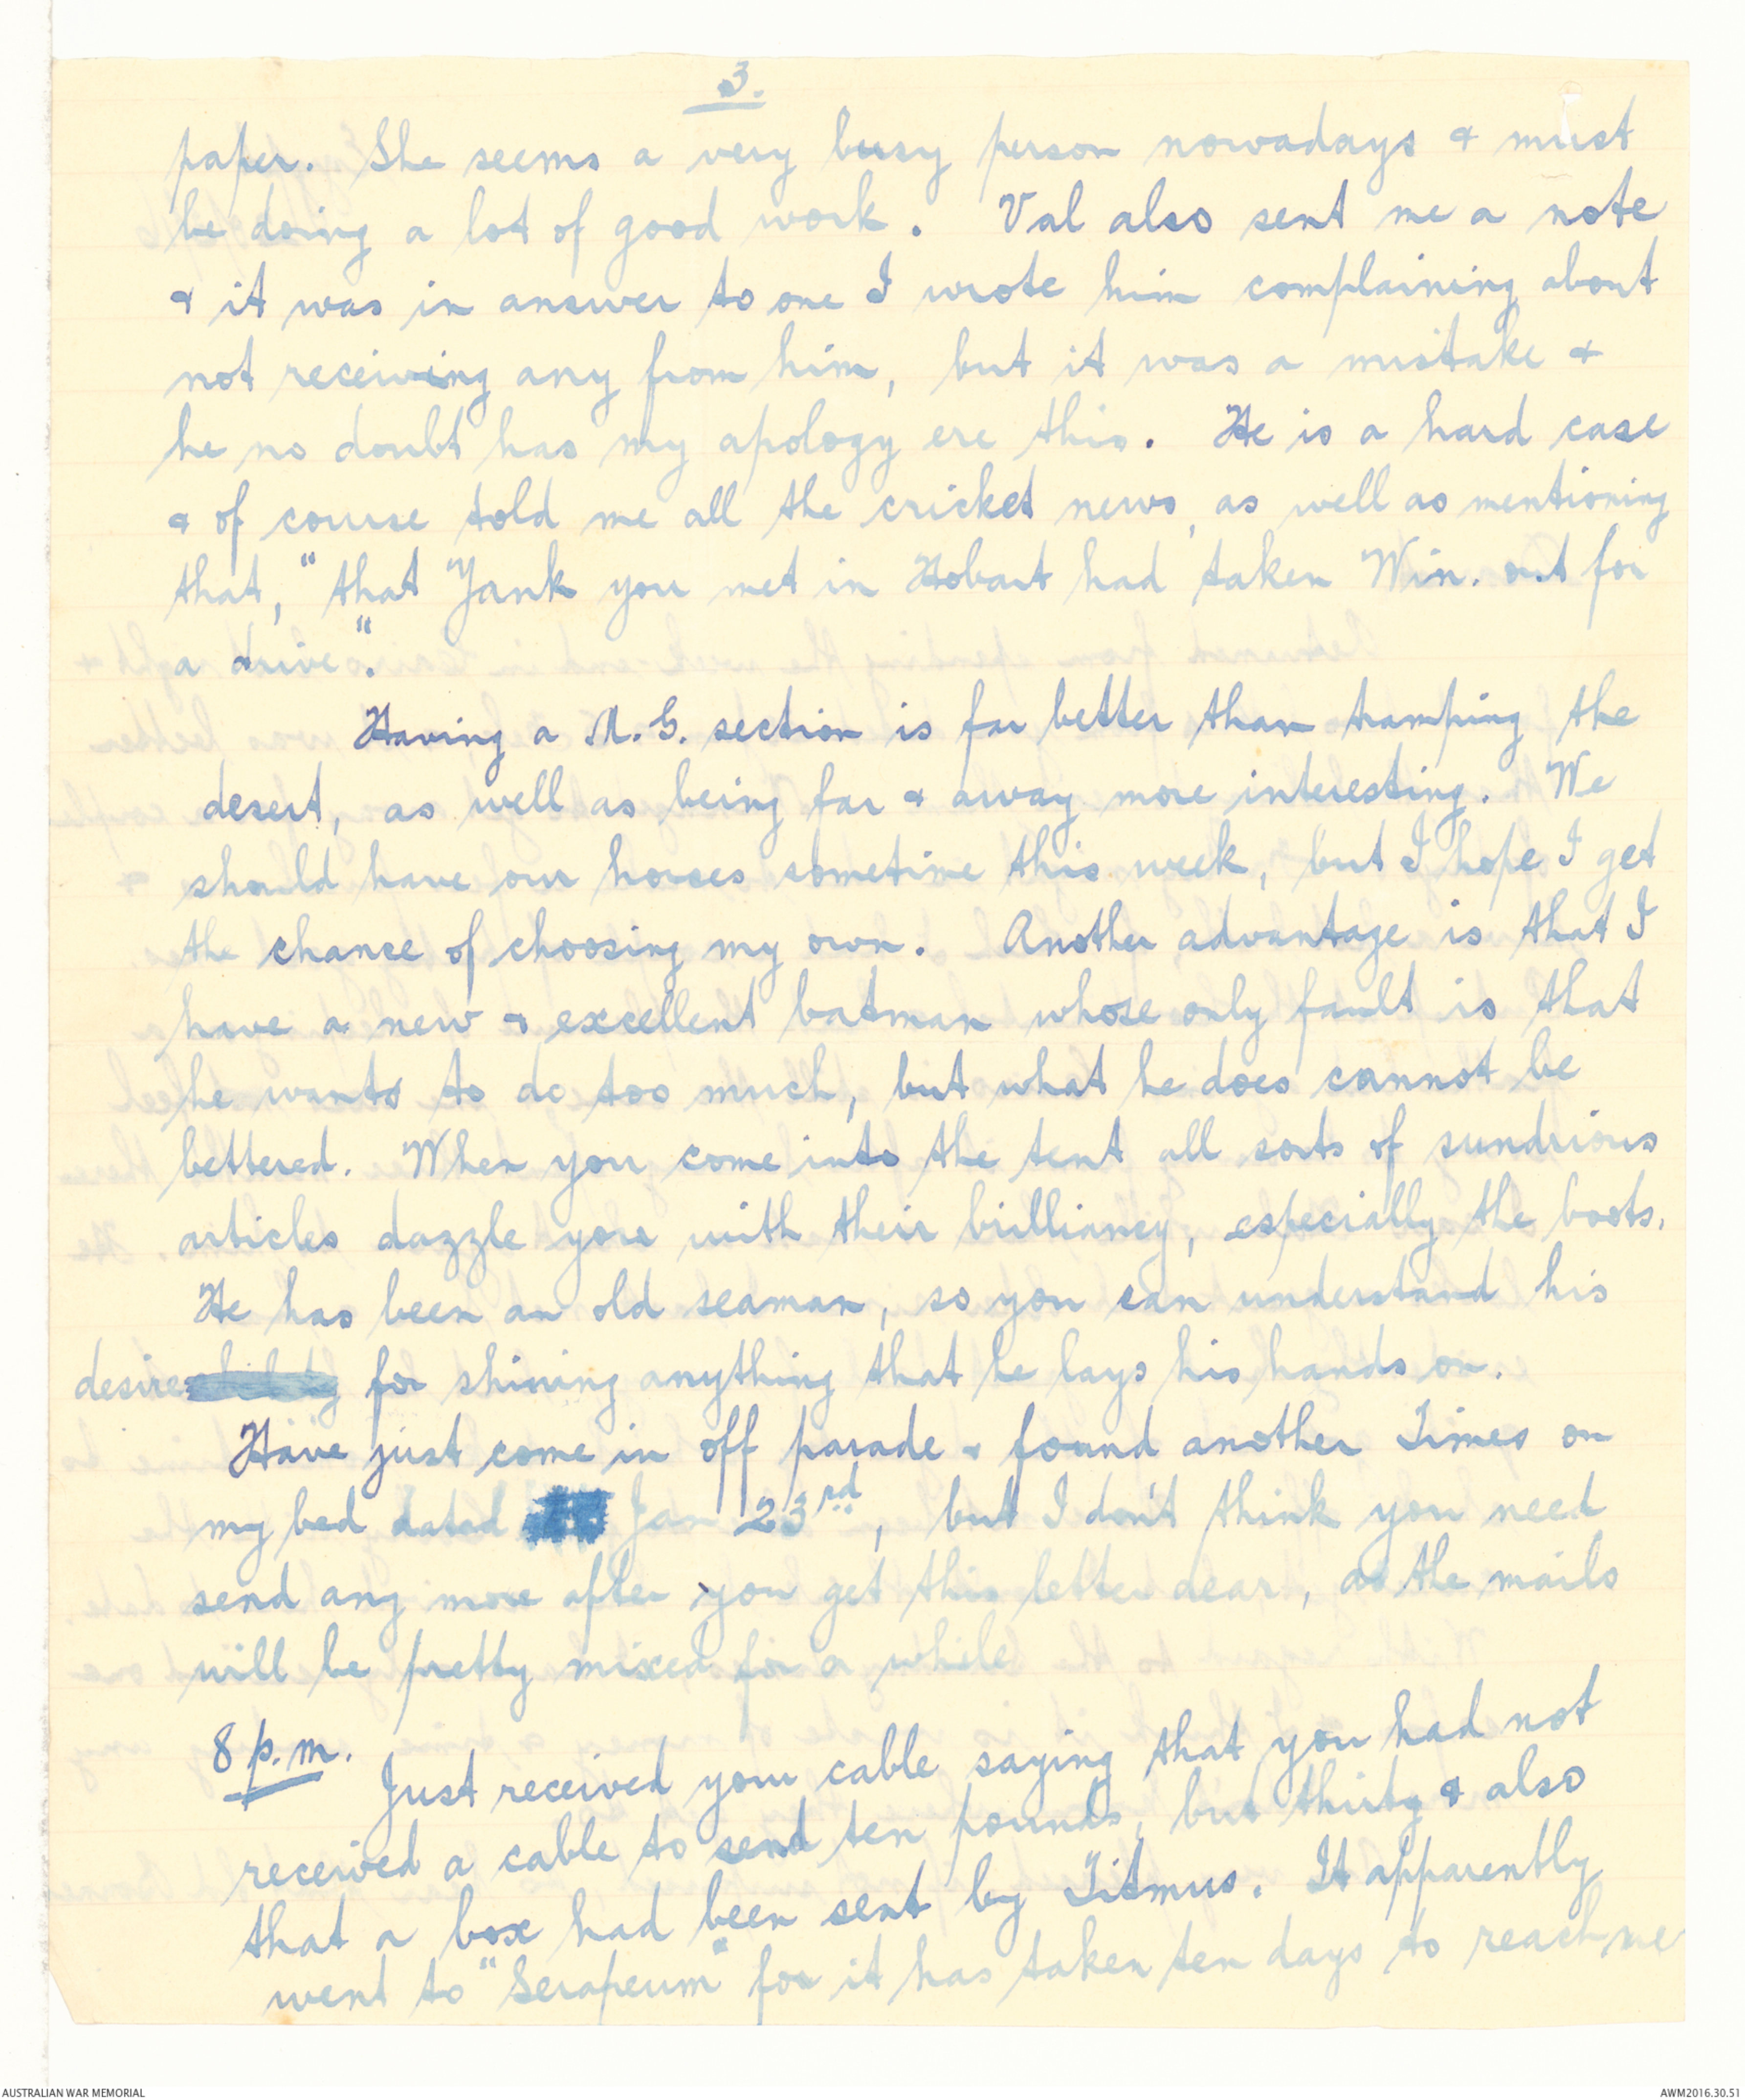 3.
paper. She seems a very busy person nowadays & must
be doing a lot of good work. Val also sent me a note
& it was in answer to one I wrote him complaining about
not receiving any from him, but it was a mistake &
he no doubt has my apology ere this. He is a hard case
& of course told me all the cricket news, as well as mentioning
that, "that Yank you met in Hobart had taken Win. out for
a drive".
Having a M.G. section is far better than tramping the
desert, as well as being far & away more interesting. We
should have our horses sometime this week, but I hope I get
the chance of choosing my own. Another advantage is that I
have a new & excellent batman whose only fault is that
he wants to do too much, but what he does cannot be
bettered. When you come into the tent all sorts of sundrious
articles dazzle you with their brilliancy, especially the boots.
He has been an old seaman, so you can understand his
desire for shining anything that he lays his hands on.
Have just come in off parade & found another Times on
my bed dated Jan 23rd, but I don't think you need
send any more after you get this letter dear, as the mails
will be pretty mixed for a while
8 p.m. Just received your cable saying that you had not
received a cable to send ten pounds, but thirty & also
that a box had been sent by Titmus. It apparently
went to "Serapeum" for it has taken ten days to reach me
AUSTRALIAN WAR MEMORIAL
AWM2016.30.51